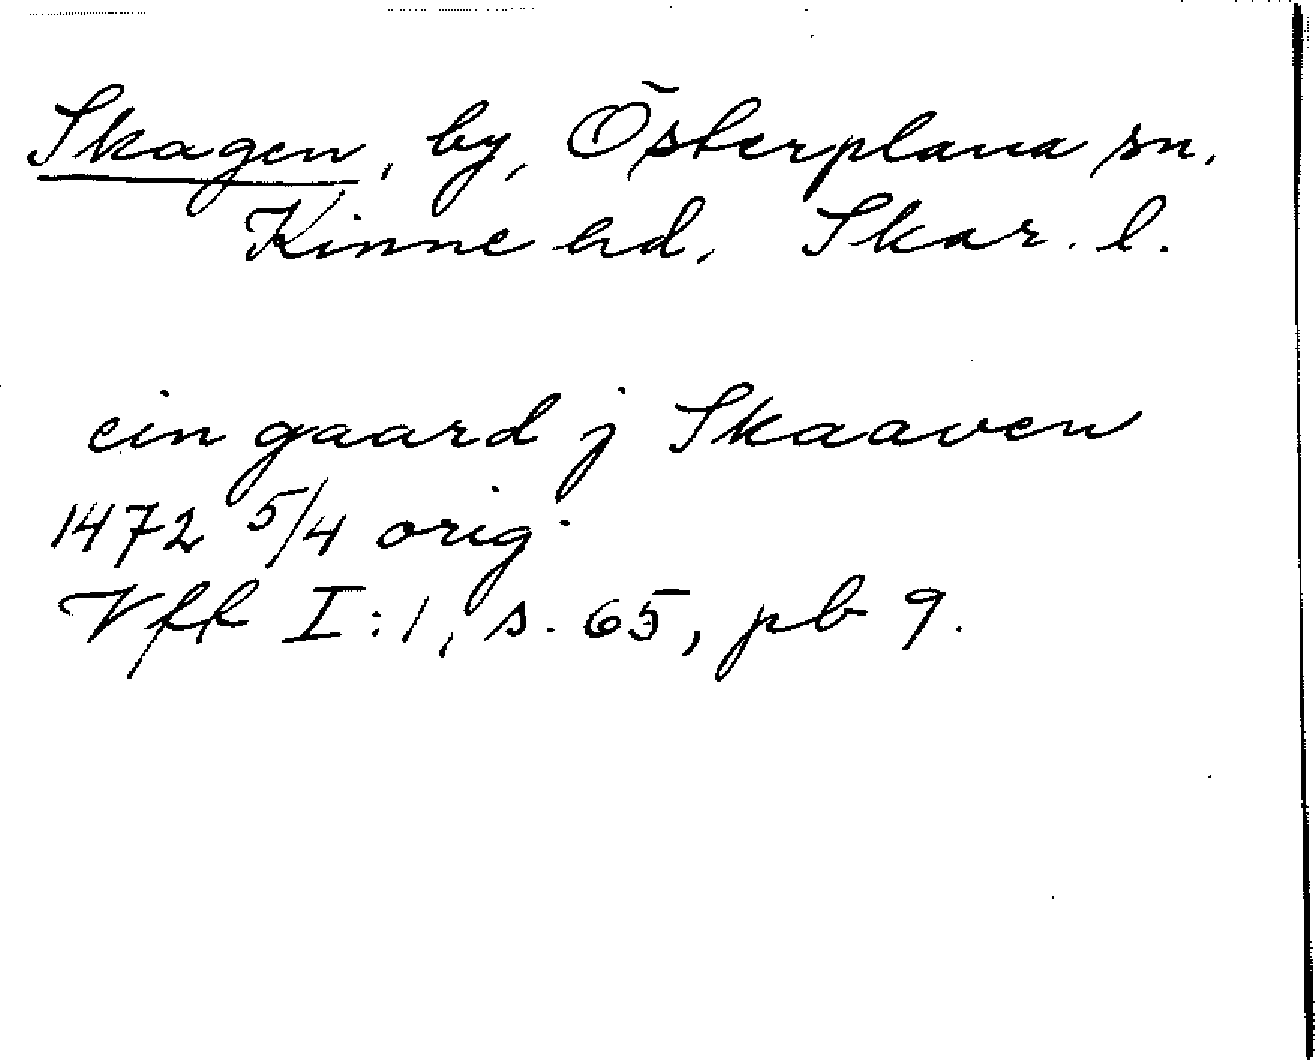 Skagen, by, Österplana sn.
Kinne hd, Skar. l.
ein gaard j Skaaven
1472 5/4 orig.
Vff I:1, s. 65, pb 9.